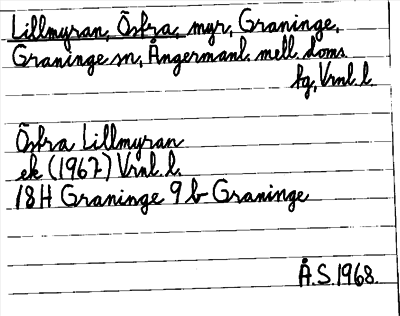 Lillmyran, Östra, myr, Graninge,
Graninge sn, Ångermanl. mell. doms.
fg, Vrnl. l.
Östra Lillmyran
ek (1967) Vrnl. l.
18H Graninge 9 b Graninge
Å.S. 1968.